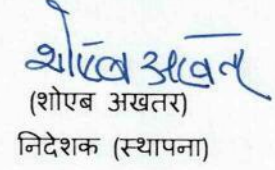 शोएब अख्तर
(शोएब अखतर)
निदेशक (स्थापना)